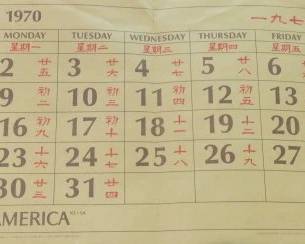 1970 一九七
MONDAY TUESDAY WEDNESDAY THURSDAY FRIDAY
星期一 星期二 星期三 星期四 星期五
2 廿五 3 廿六 4 廿七 5 廿八 6
9 初二 10 初三 11 初四 12 初五 13
16 初九 17 初十 18 十一 19 十二 20
23 十六 24 十七 25 十八 26 十九 27
30 廿三 31 廿四
AMERICA